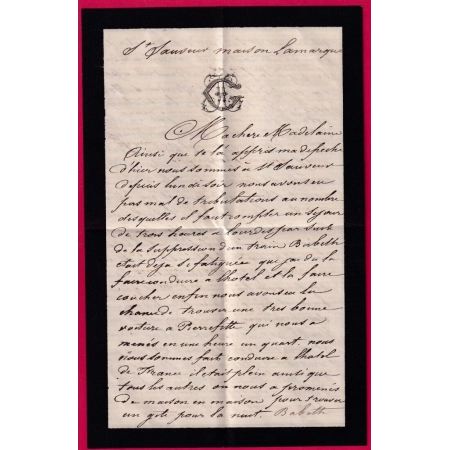 St Sauveur maison Lamarque
Ma chère Madelaine
Ainsi que te l'a appris ma depeche
d'hier nous sommes à St Sauveur
depuis lundi soir nous avons eu
pas mal de tribulations au nombre
desquelles il faut compter un sejour
de trois heures a Lourdes par suite
de la suppression d'un train Babeth
etait deja si fatiguée que j'ai du la
faire conduire à l'hotel et la faire
coucher enfin nous avons eu la
chance de trouver une tres bonne
voiture a Pierrefitte qui nous a
menés en une heure un quart nous
nous sommes fait conduire a l'hotel
de France il etait plein ainsi que
tous les autres on nous a promenés
de maison en maison pour trouver
un gite pour la nuit. Babeth